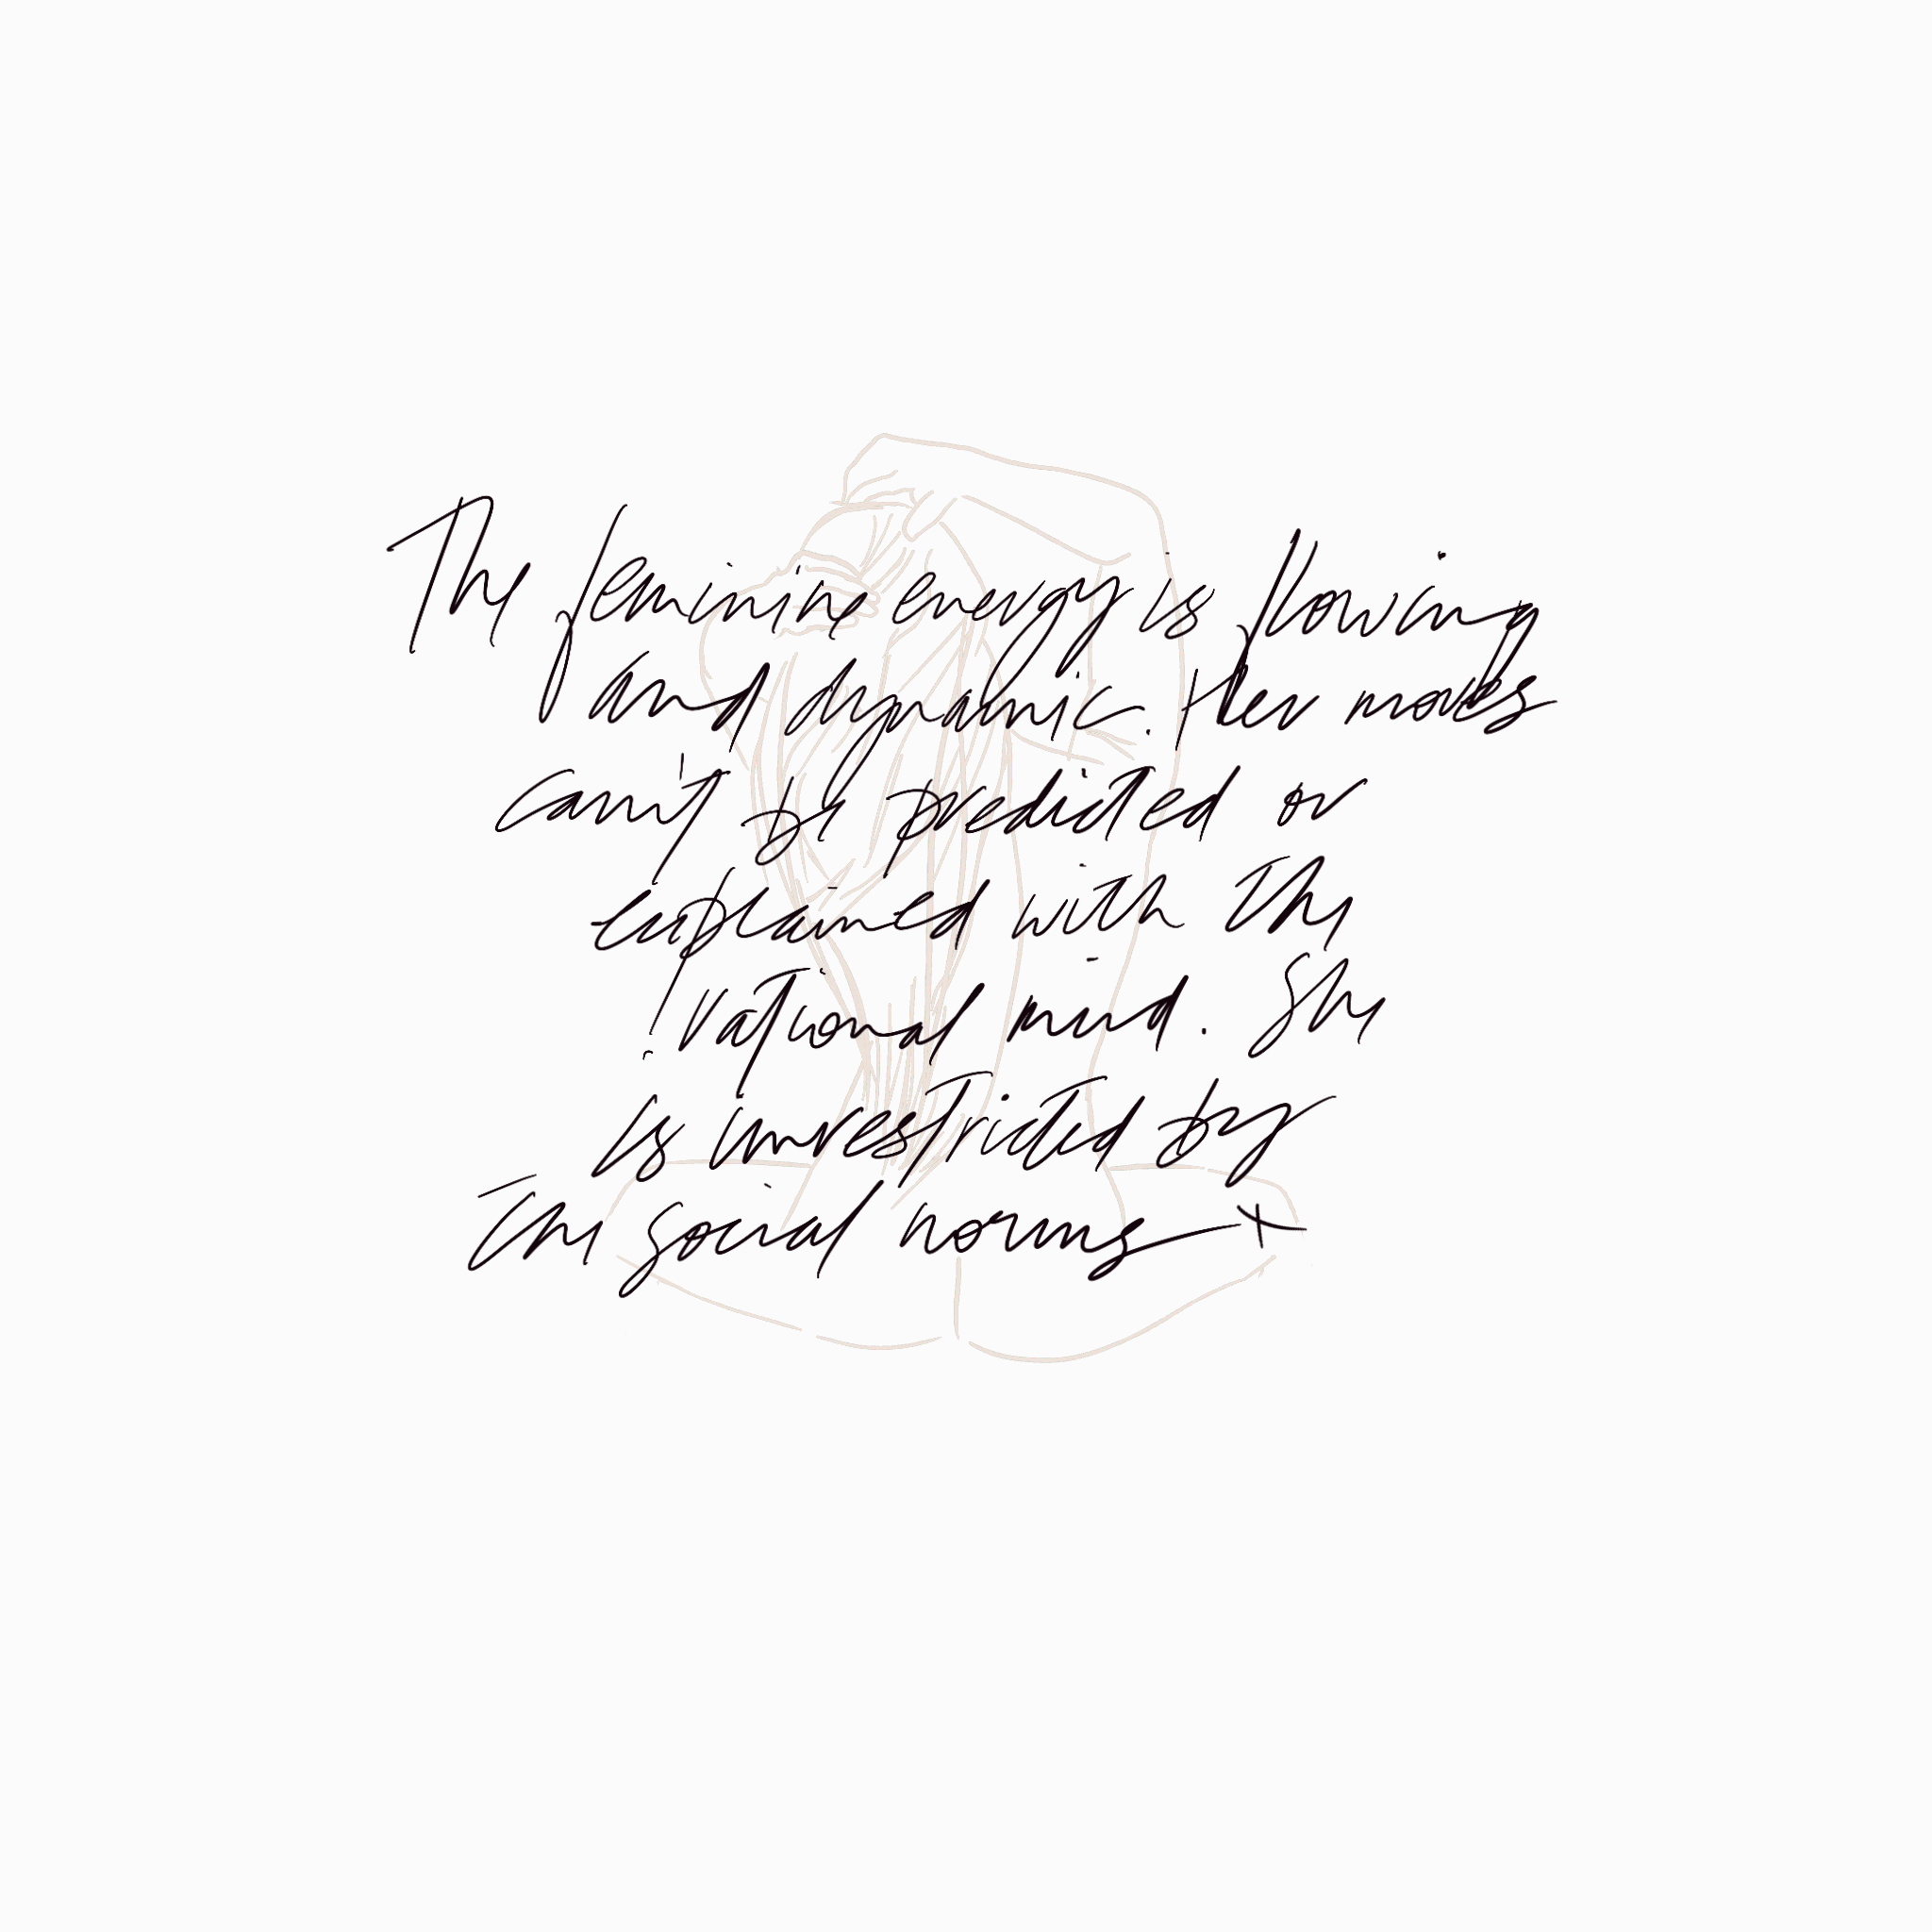 The feminine energy is flowing
and dynamic. Her moves
can't be predicted or
explained with the
rational mind. She
is unrestricted by
the social norms